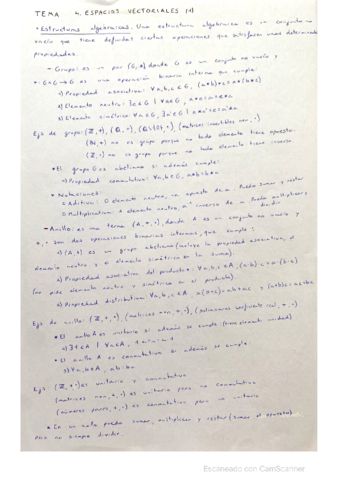 TEMA 4. ESPACIOS VECTORIALES (1)
• Estructuras algebraicas. Una estructura algebraica es un conjunto no
vacío que tiene definidas ciertas operaciones que satisfacen unas determinadas
propiedades.
→ Grupo: es un par (G,*) donde G es un conjunto no vacío y
*: G×G → G es una operación binaria interna que cumple:
a) Propiedad asociativa: ∀a,b,c ∈ G, (a*b)*c = a*(b*c)
b) Elemento neutro: ∃e∈G | ∀a∈G, a*e = e*a = a
c) Elemento simétrico: ∀a∈G, ∃a'∈G | a*a' = a'*a = e
Ejs de grupo: (ℤ,+), (ℚ,+), (ℚ\{0},·), (matrices invertibles n×n,·)
(ℕ,+) no es grupo porque no todo elemento tiene opuesto
(ℤ,·) no es grupo porque no todo elemento tiene inverso
• El grupo G es abeliano si además cumple:
d) Propiedad conmutativa: ∀a,b∈G, a*b = b*a
• Notaciones:
Aditiva: 0 elemento neutro, -a opuesto de a. Puedo sumar y restar
Multiplicativa: 1 elemento neutro, a⁻¹ inverso de a. Puedo multiplicar y
dividir
→ Anillo: es una terna (A,+,·), donde A es un conjunto no vacío y
+,· son dos operaciones binarias internas, que cumple:
a) (A,+) es un grupo abeliano (incluye la propiedad asociativa, el
elemento neutro y el elemento simétrico en la suma).
b) Propiedad asociativa del producto: ∀a,b,c∈A, (a·b)·c = a·(b·c)
(no pide elemento neutro y simétrico en el producto)
c) Propiedad distributiva: ∀a,b,c∈A, a(b+c) = ab+ac y (a+b)c = ac+bc
Ejs de anillo: (ℤ,+,·), (matrices n×n,+,·), (polinomios coeficiente real,+,·)
• El anillo A es unitario si además se cumple
d) ∃1∈A | ∀a∈A, 1·a = a·1 = a
• El anillo A es conmutativo si además se cumple:
e) ∀a,b∈A, ab = ba
Ejs: (ℤ,+,·) es unitario y conmutativo
(matrices n×n,+,·) es unitario pero no conmutativo
(números pares,+,·) es conmutativo pero no unitario
• En un anillo puedo sumar, multiplicar y restar (sumar el opuesto)
pero no siempre dividir.
Escaneado con CamScanner